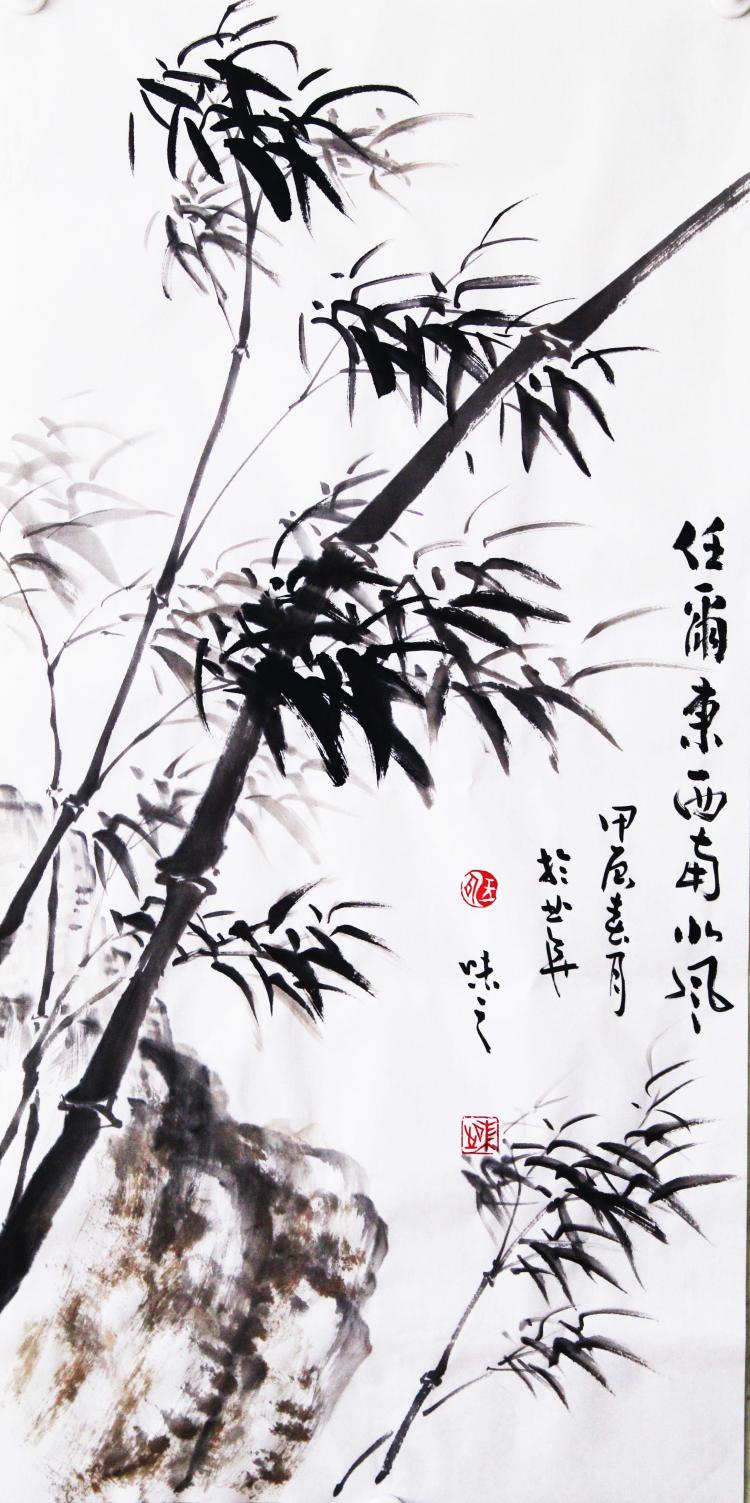 任爾東西南北風
甲辰春月
於曲阜
味之